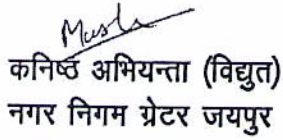 कनिष्ठ अभियन्ता (विद्युत)
नगर निगम ग्रेटर जयपुर